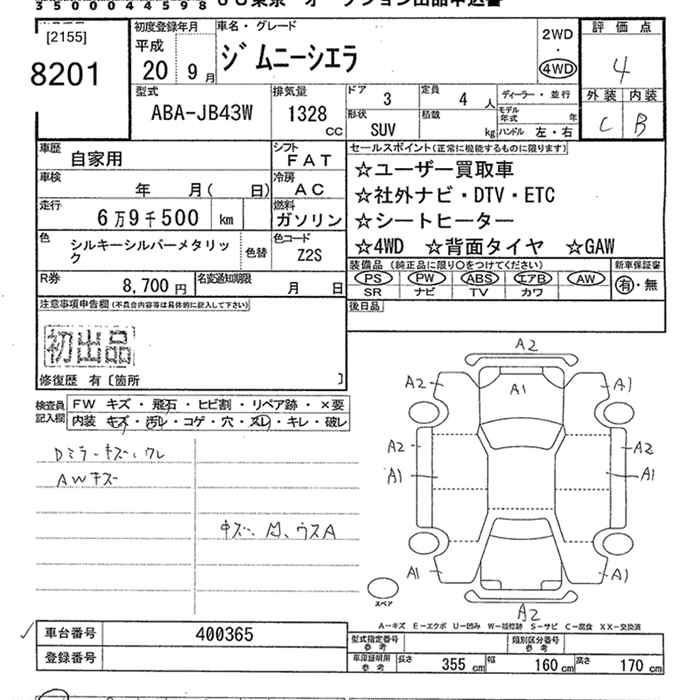 35000044598 ＵＳ東京 オークション出品申込書
[2155]
8201
初度登録年月 平成 20 9 月
車名・グレード
ジムニーシエラ
2WD
・
4WD
評価点
4
外装 内装
C B
型式
ABA-JB43W
排気量
1328 CC
ドア 3
定員 4 人
ディーラー・並行
形状 SUV
積載 kg
モデル年式 年
ハンドル 左・右
車歴 自家用
シフト FAT
車検 年 月( 日)
冷房 AC
走行 6万9千500 km
燃料 ガソリン
色 シルキーシルバーメタリック
色替
色コード Z2S
R券 8,700 円
名変通知期限 月 日
セールスポイント(正常に機能するものに限ります)
☆ユーザー買取車
☆社外ナビ・DTV・ETC
☆シートヒーター
☆4WD ☆背面タイヤ ☆GAW
装備品 (純正品に限り○をつけてください)
新車保証書
PS PW ABS エアB AW
SR ナビ TV カワ
有・無
後日品
注意事項申告欄(不具合内容等は具体的に記入して下さい)
初出品
修復歴 有〔箇所 〕
検査員記入欄
FW キズ・飛石・ヒビ割・リペア跡・×要
内装 キズ・汚レ・コゲ・穴・スレ・キレ・破レ
Dミラーキズ、ワレ
AWキズ
キズ、凹、ウスA
A2
A2 A1 A1
A2 A2
A1 A1
A1 A1
A2
スペア
A－キズ E－エクボ U－凹み W－板修跡 S－サビ C－腐食 XX－交換済
✓
車台番号 400365
登録番号
型式指定番号 参考
類別区分番号 参考
車庫証明用 参考 長さ 355 cm 幅 160 cm 高さ 170 cm